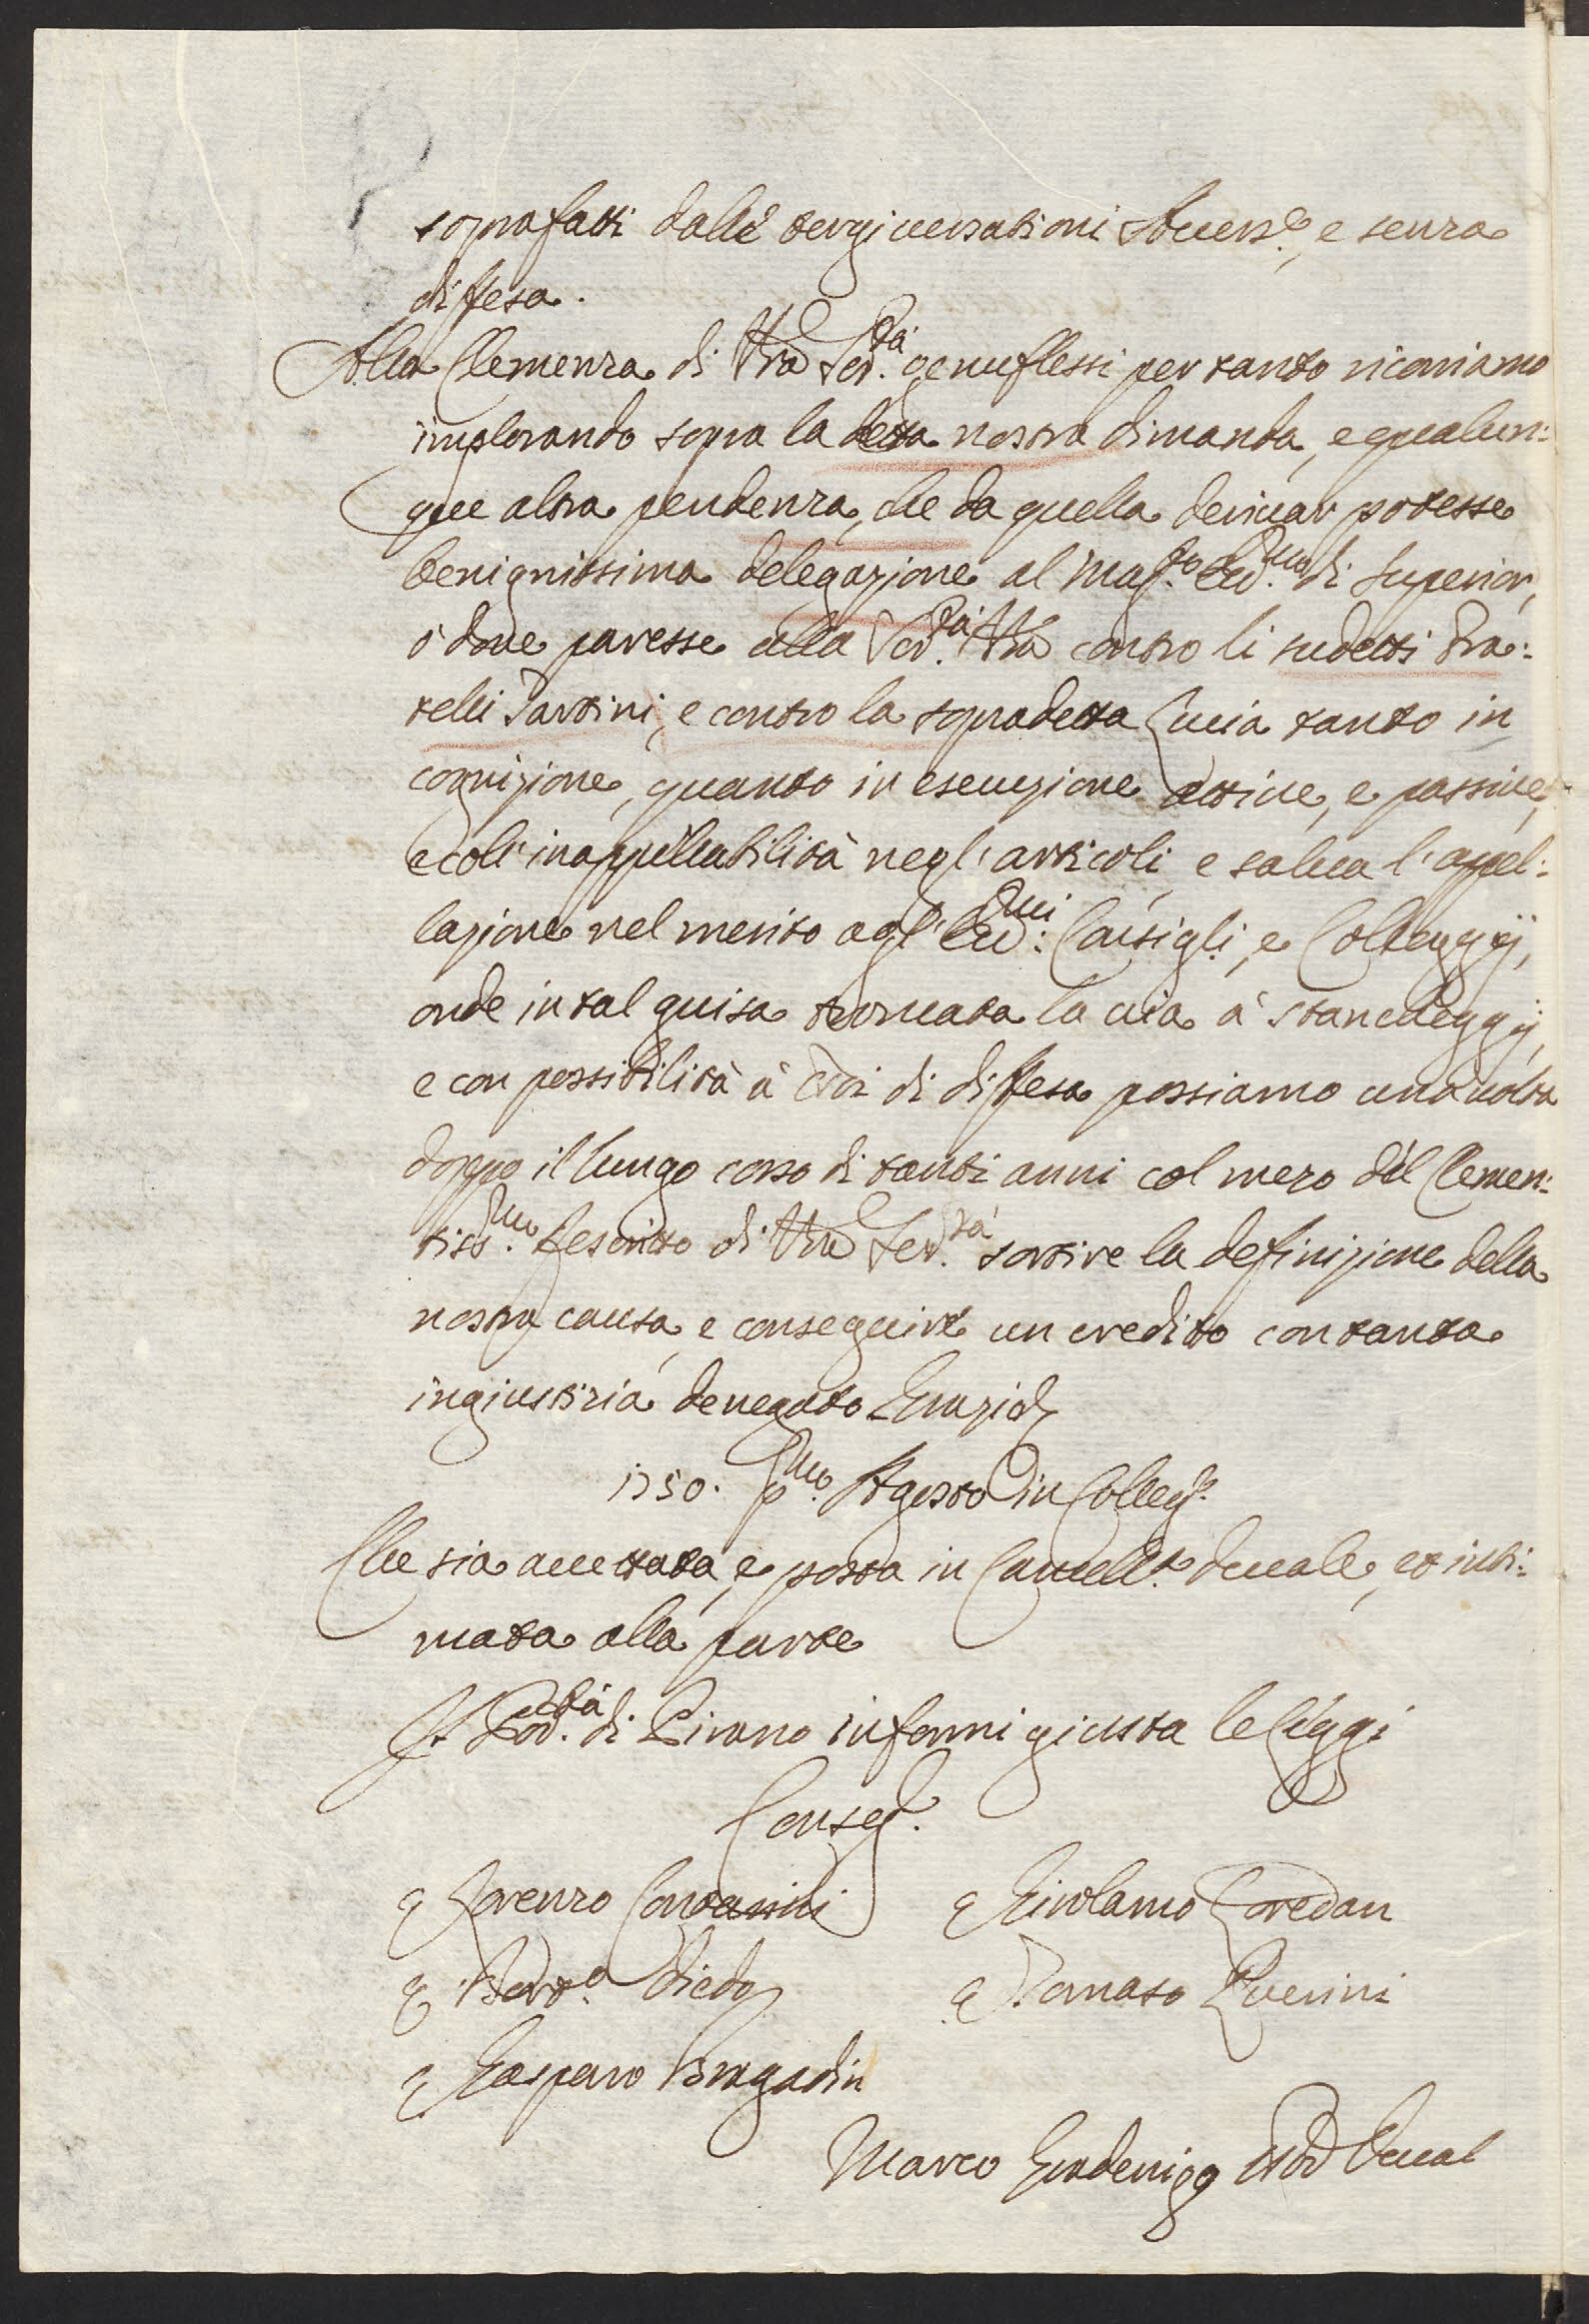 soprafatti dalle tergiversationi Avers.e, e senza
diffesa.
Alla Clemenza di Vra Ser.tà genuflessi per tanto ricoriamo
implorando sopra la detta nostra dimanda, e qualun:
que altra pendenza, che da quella derivar potesse
benignissima delegazione al Mag.to Ecc.mo di Superior,
ò dove paresse alla Ser.tà Vra contro li sudetti Fra:
telli Tartini, e contro la sopradetta Lucia tanto in
cognizione, quanto in esecuzione attive, e passive,
e coll'inappellabilità negl'articoli, e salva l'appel:
lazione nel merito agl'Ecc.mi Consigli, e Colleggij,
onde in tal guisa troncata la via à stancheggij,
e con possibilità à noi di diffesa possiamo una volta
doppo il lungo corso di tanti anni col mezo del Clemen:
tiss.mo Rescritto di Vra Ser.tà sortire la definizione della
nostra causa, e conseguire un credito con tanta
ingiustizia denegato Grazie
1750. p.mo Agosto in Colleg.o
Che sia accettata, e posta in Cancell.a ducale, et inti:
mata alla parte
Il Pod.tà di Pirano informi giusta le leggi
Conseg.
Lorenzo Contarini Girolamo Loredan
Bort.o Diedo Tomaso Querini
Gasparo Bragadin
Marco Gradenigo Nod Ducal